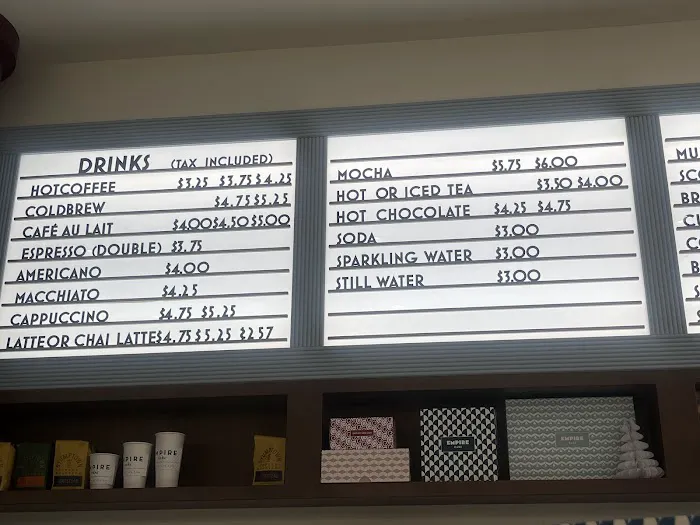 DRINKS (TAX INCLUDED)
HOTCOFFEE $3.25 $3.75 $4.25
COLDBREW $4.75 $5.25
CAFÉ AU LAIT $4.00 $4.50 $5.00
ESPRESSO (DOUBLE) $3.75
AMERICANO $4.00
MACCHIATO $4.25
CAPPUCCINO $4.75 $5.25
LATTEOR CHAI LATTE $4.75 $5.25 $2.57
MOCHA $5.75 $6.00
HOT OR ICED TEA $3.50 $4.00
HOT CHOCOLATE $4.25 $4.75
SODA $3.00
SPARKLING WATER $3.00
STILL WATER $3.00
MU
SC
BR
EMPIRE
EMPIRE